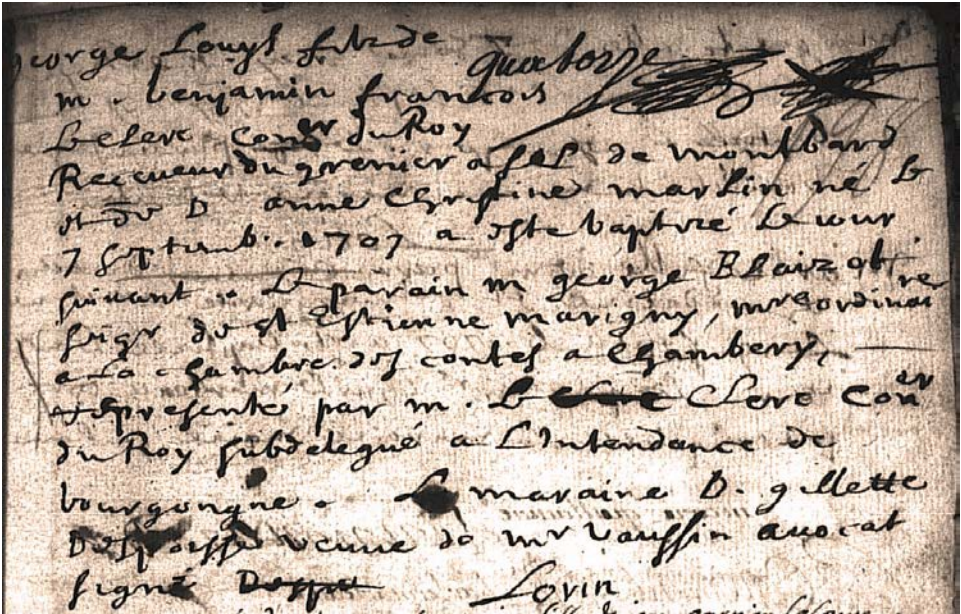 george Louys fils de
quatorze
m. benjamin francois
Leclerc Con.er du Roy
Receveur du grenier a sel de montbard
et de D anne Christine marlin né le
7 septemb. 1707 a esté baptizé le iour
suivant. Le parain m george Blaizot
seigr de st Estienne marigny, mre ordinaire
a la chambre des contes a Chambery,
représenté par m. Le Clerc Coner
du Roy subdelegué a L'Intendance de
bourgongne. La maraine D. gillette
veuve de mr vaussin avocat
signé Lorin